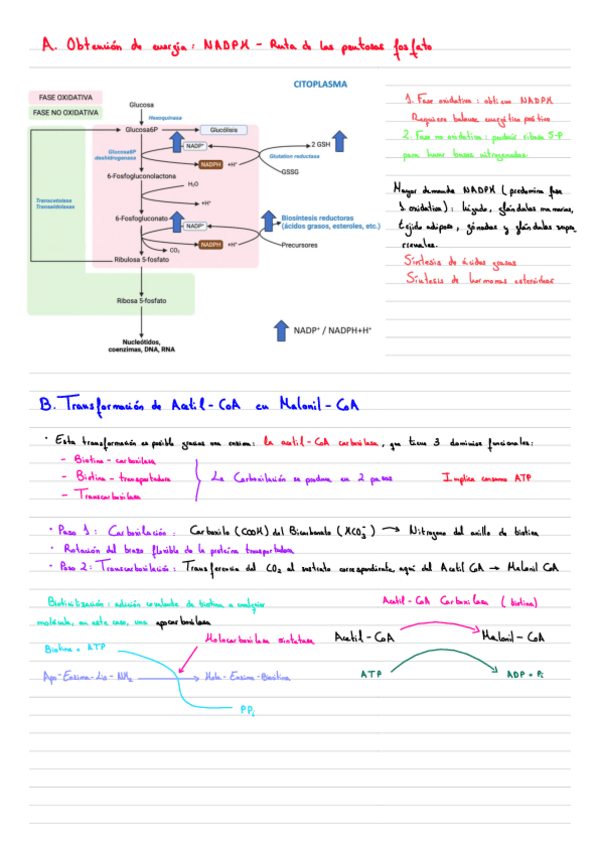 A. Obtención de energía: NADPH - Ruta de las pentosas fosfato
CITOPLASMA
FASE OXIDATIVA
FASE NO OXIDATIVA
Glucosa
Hexoquinasa
Glucosa6P
Glucólisis
NADP⁺
2 GSH
Glucosa6P
deshidrogenasa
NADPH +H⁺
Glutation reductasa
GSSG
6-Fosfogluconolactona
H₂O
+H⁺
Transcetolasa
Transaldolasas
6-Fosfogluconato
NADP⁺
Biosíntesis reductoras
(ácidos grasos, esteroles, etc.)
NADPH +H⁺
Precursores
CO₂
Ribulosa 5-fosfato
Ribosa 5-fosfato
Nucleótidos,
coenzimas, DNA, RNA
NADP⁺ / NADPH+H⁺
1. Fase oxidativa: obtiene NADPH
Requiere balance energético positivo
2. Fase no oxidativa: producir ribosa 5-P
para hacer bases nitrogenadas
Mayor demanda NADPH (predomina fase
oxidativa): hígado, glándulas mamarias,
tejido adiposo, gónadas y glándulas supra
rrenales.
Síntesis de ácidos grasos
Síntesis de hormonas esteroideas
B. Transformación de Acetil-CoA en Malonil-CoA
· Esta transformación es posible gracias una enzima: la acetil-CoA carboxilasa, que tiene 3 dominios funcionales:
- Biotina-carboxilasa
- Biotina-transportadora
- Transcarboxilasa
La Carboxilación se produce en 2 pasos
Implica consumo ATP
· Paso 1: Carboxilación: Carboxilo (COOH) del Bicarbonato (HCO₃⁻) → Nitrógeno del anillo de biotina
· Rotación del brazo flexible de la proteína transportadora
· Paso 2: Transcarboxilación: Transferencia del CO₂ al sustrato correspondiente, aquí del Acetil CoA → Malonil CoA
Biotinilización: adición covalente de biotina a cualquier
molécula, en este caso, una apocarboxilasa
Holocarboxilasa sintetasa
Biotina + ATP
Apo-Enzima-Lis-NH₂ → Holo-Enzima-Biotina
PPi
Acetil-CoA Carboxilasa (biotina)
Acetil-CoA
Malonil-CoA
ATP
ADP + Pi